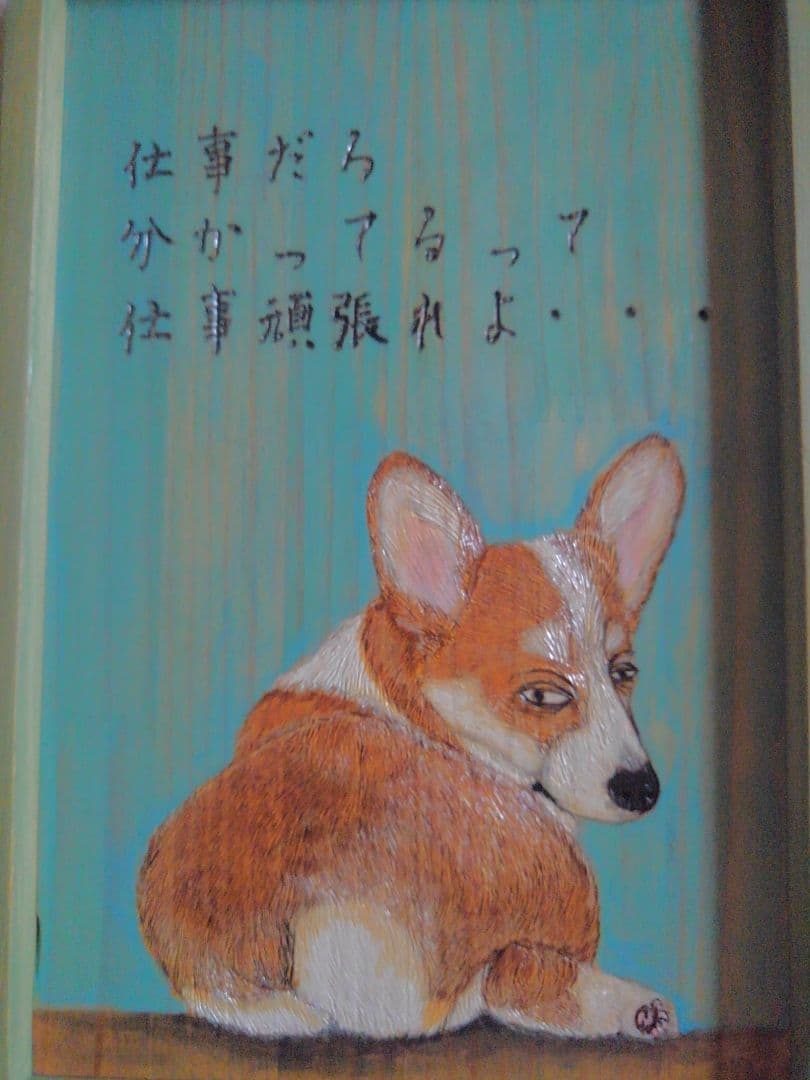 仕事だろ
分かってるって
仕事頑張れよ・・・